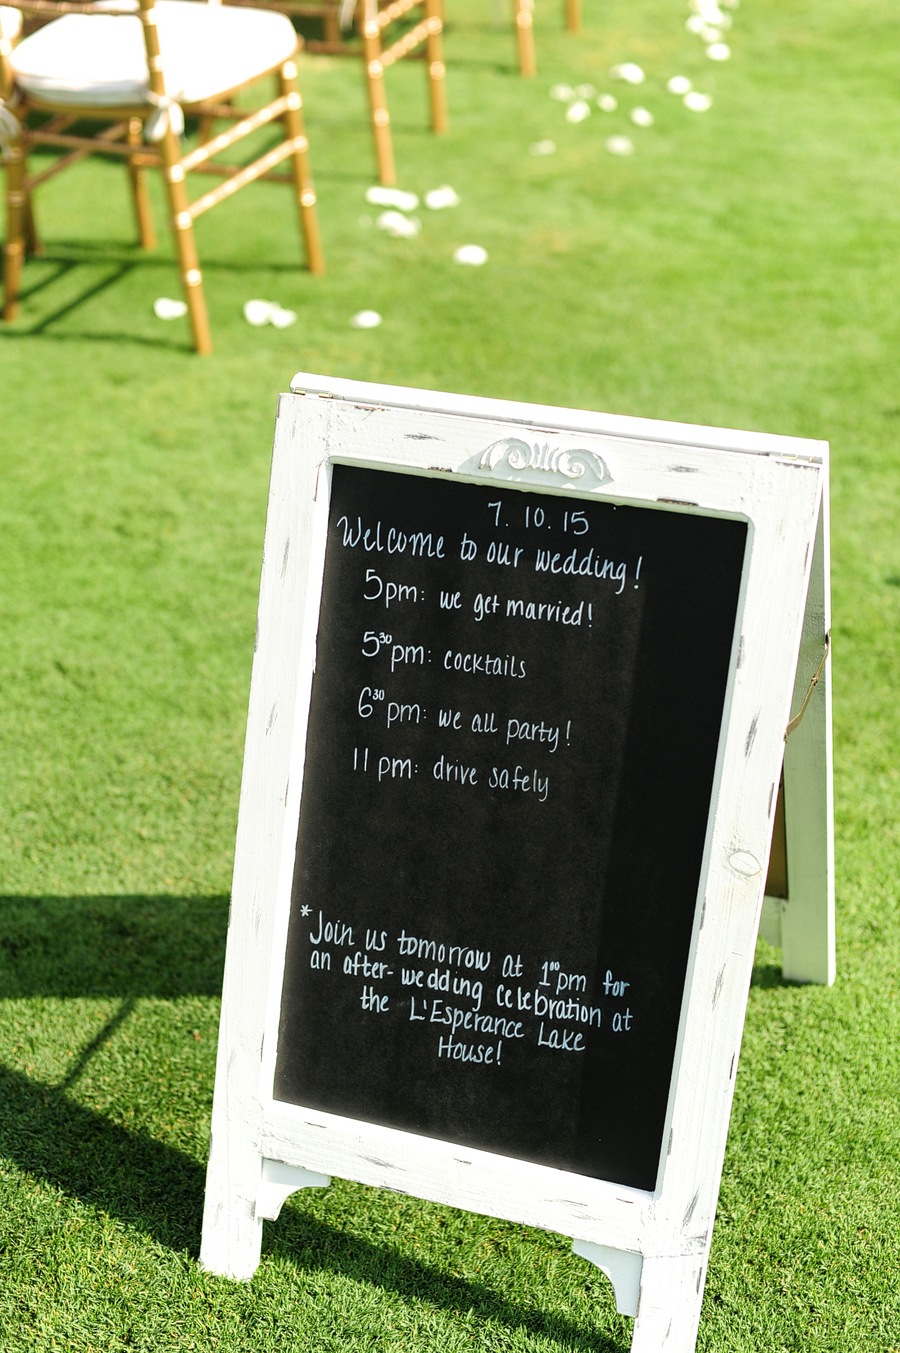 7. 10. 15
Welcome to our wedding!
5pm: we get married!
5³⁰pm: cocktails
6³⁰pm: we all party!
11pm: drive safely
*Join us tomorrow at 1⁰⁰pm for
an after-wedding celebration at
the L'Esperance Lake
House!